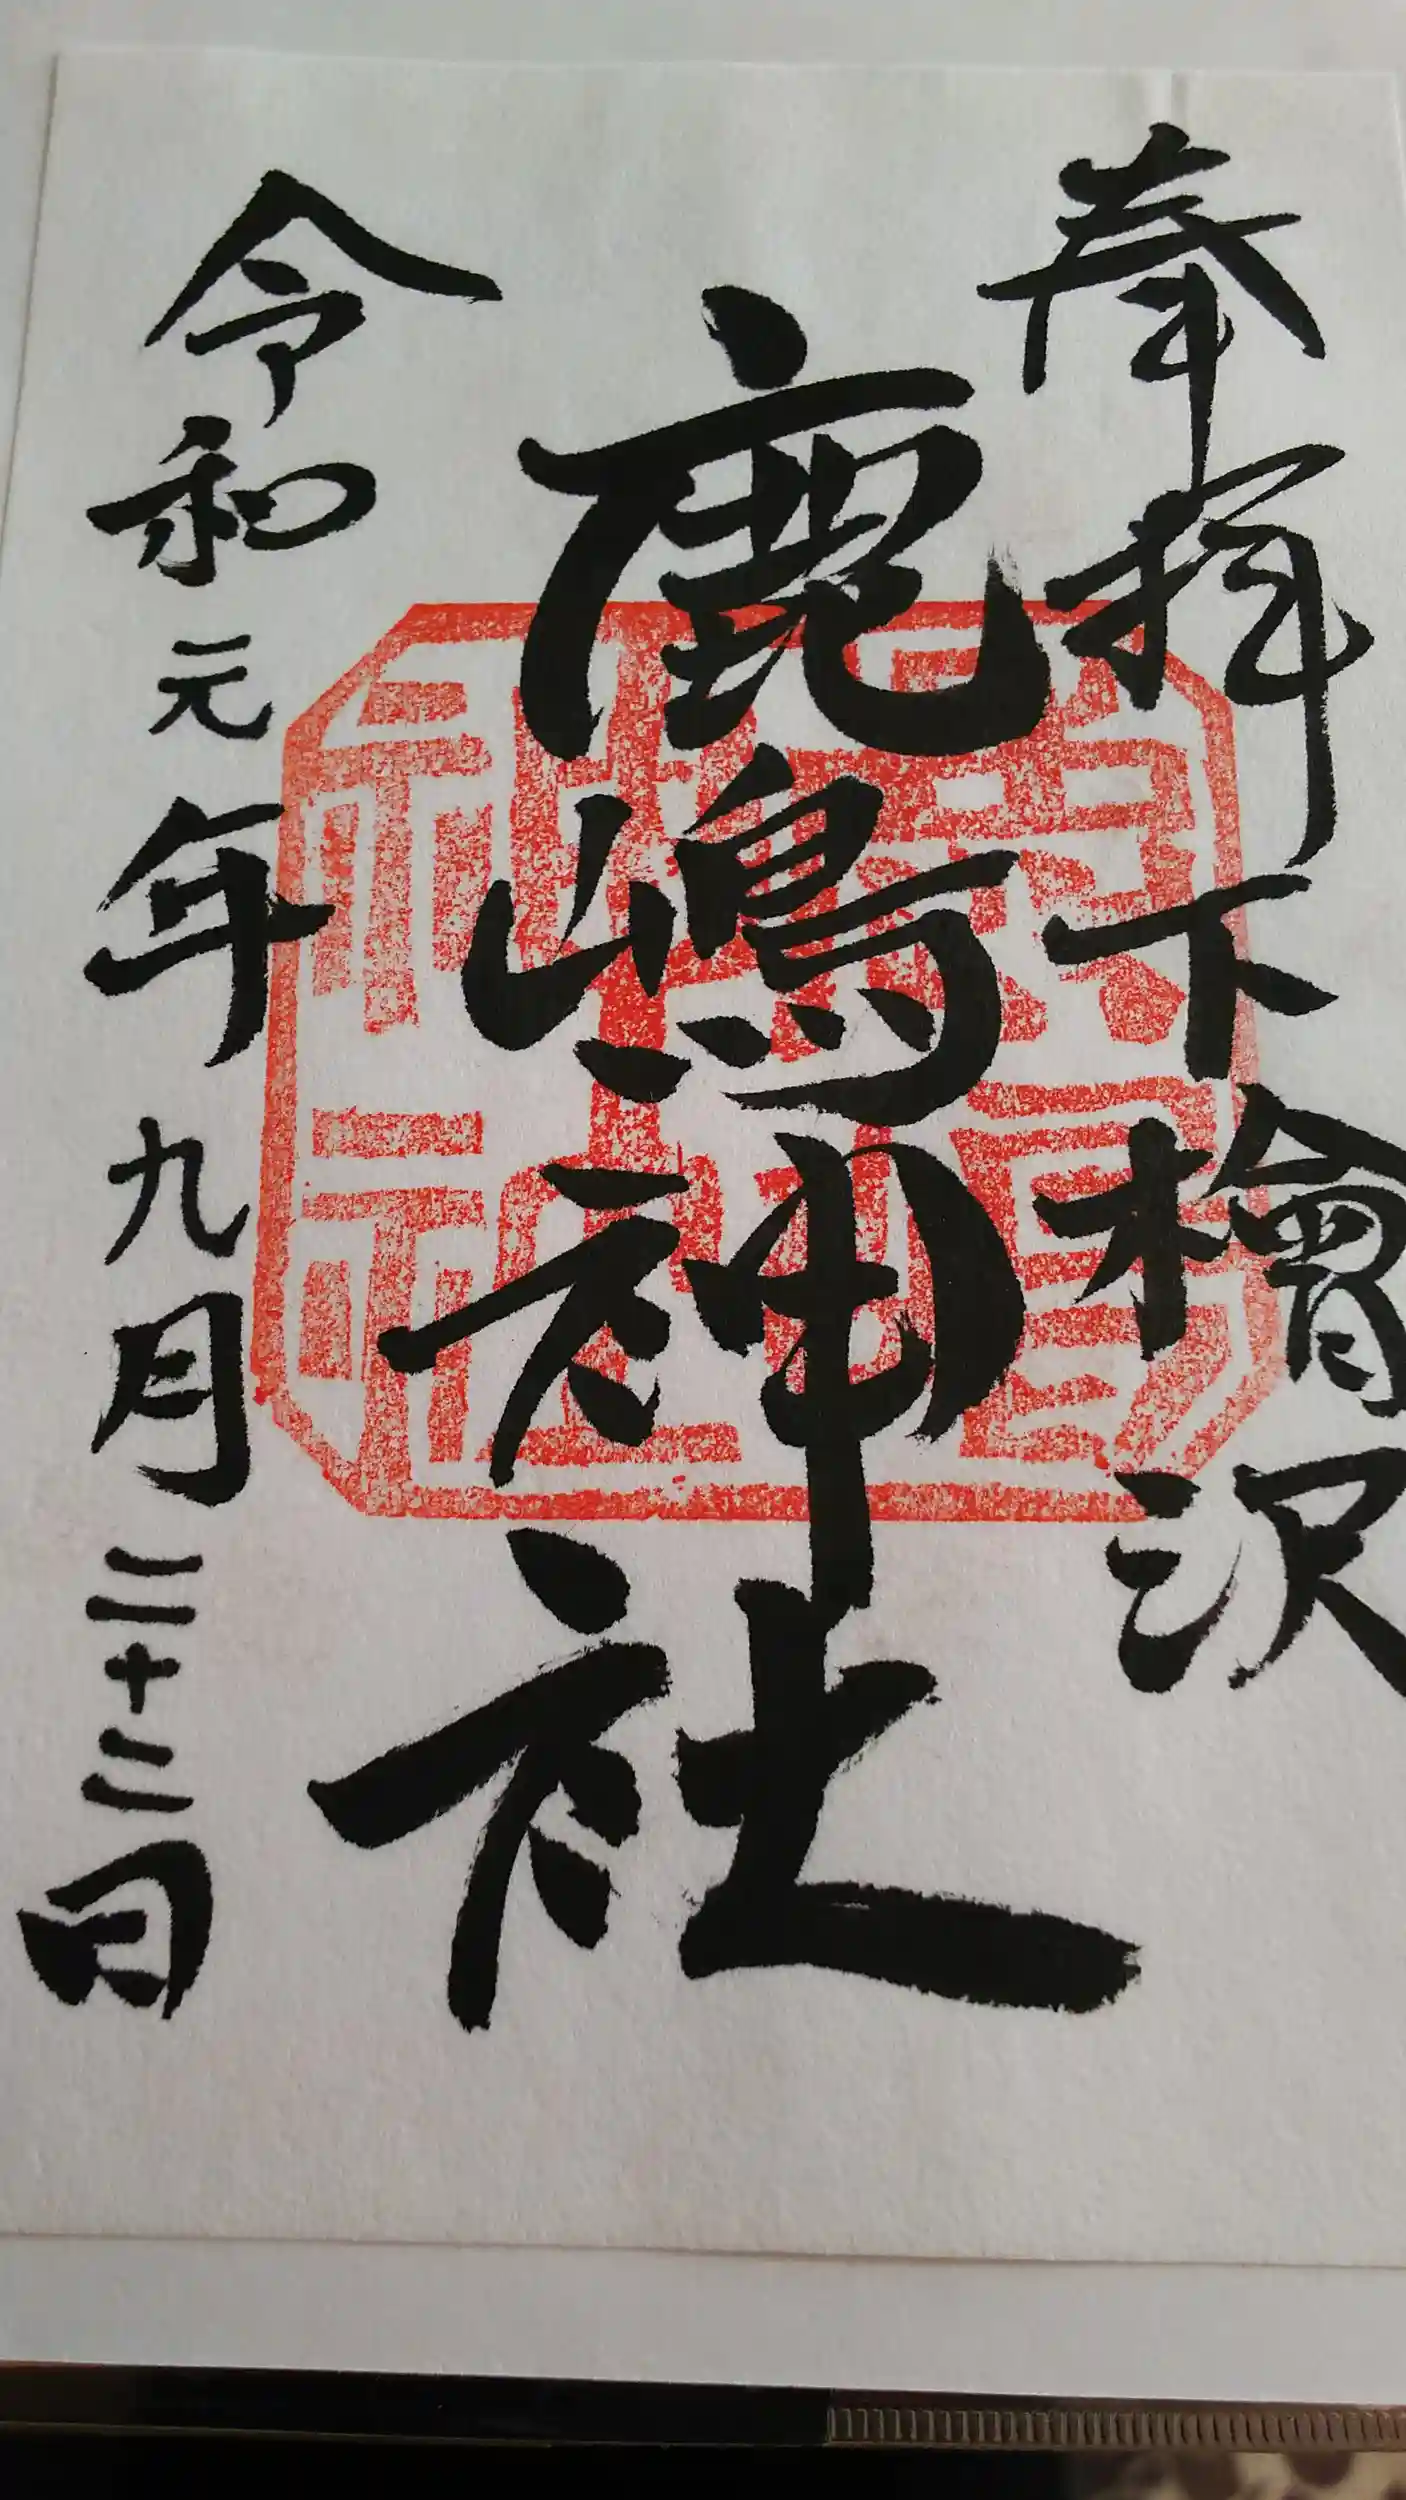 奉拝下檜沢
鹿嶋神社
令和元年九月二十二日
鹿嶋神社